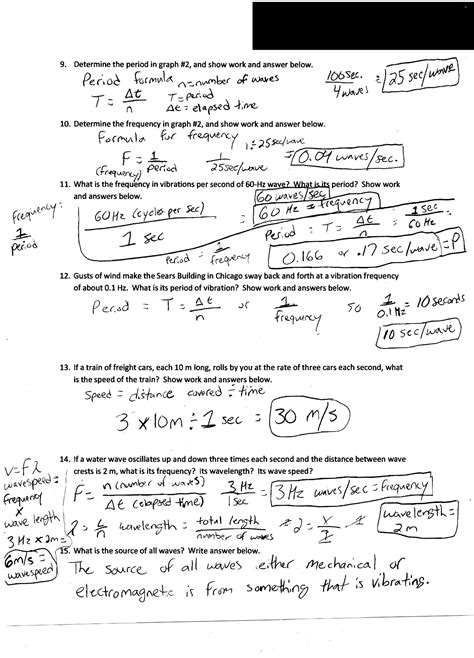 9. Determine the period in graph #2, and show work and answer below.
Period formula n=number of waves
T = Δt/n T = period
Δt = elapsed time
100sec. / 4 waves = 25 sec/wave
10. Determine the frequency in graph #2, and show work and answer below.
Formula for frequency
F = 1/Period
(frequency)
1/25sec/wave = 0.04 waves/sec.
11. What is the frequency in vibrations per second of 60-Hz wave? What is its period? Show work
and answers below.
frequency:
1/period
60Hz (cycles per sec) / 1 sec = 60 waves/sec
60 Hz = frequency
Period = T = Δt/n = 1 sec / 60 Hz
Period = 1/frequency
0.166 or .17 sec/wave = P
12. Gusts of wind make the Sears Building in Chicago sway back and forth at a vibration frequency
of about 0.1 Hz. What is its period of vibration? Show work and answers below.
Period = T = Δt/n or 1/frequency so 1/0.1 Hz = 10 seconds
10 sec/wave
13. If a train of freight cars, each 10 m long, rolls by you at the rate of three cars each second, what
is the speed of the train? Show work and answers below.
Speed = distance covered ÷ time
3 x 10m ÷ 1 sec = 30 m/s
14. If a water wave oscillates up and down three times each second and the distance between wave
crests is 2 m, what is its frequency? Its wavelength? Its wave speed?
v=fλ
wavespeed=
frequency
x
wave length
3 Hz x 2m =
6m/s =
wavespeed
F = n (number of waves) / Δt (elapsed time) 3 Hz / 1sec = 3Hz waves/sec = frequency
λ = L/n wavelength = total length / number of waves
wavelength =
2m
15. What is the source of all waves? Write answer below.
The source of all waves either mechanical or
electromagnetic is from something that is vibrating.